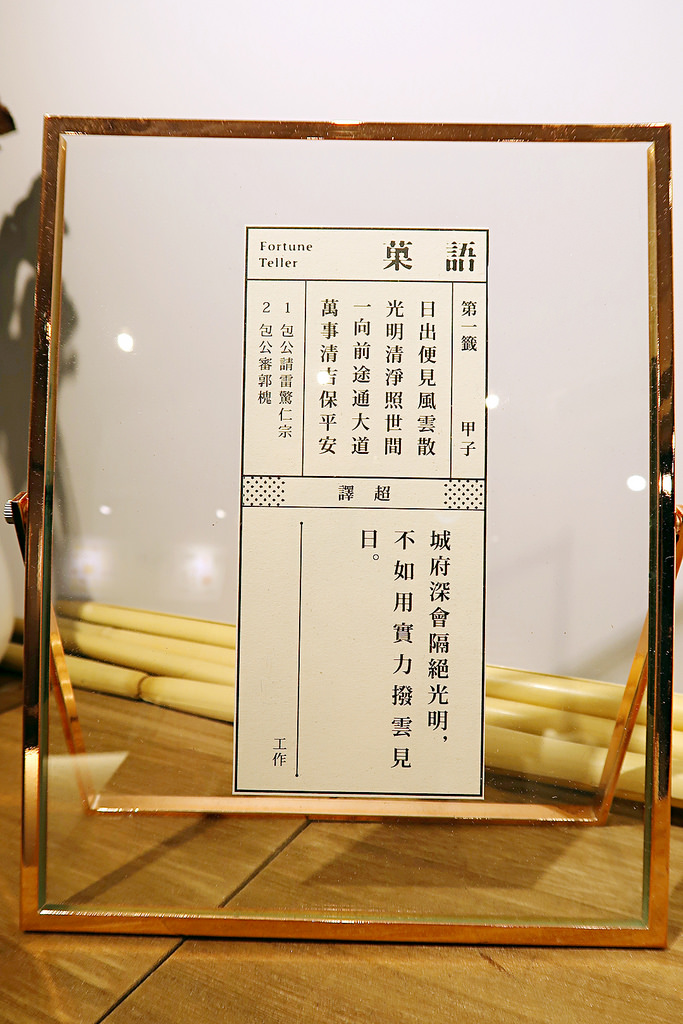 Fortune
Teller
菓語
第一籤 甲子
日出便見風雲散
光明清淨照世間
一向前途通大道
萬事清吉保平安
1 包公請雷驚仁宗
2 包公審郭槐
譯超
城府深會隔絕光明,
不如用實力撥雲見
日。
工作